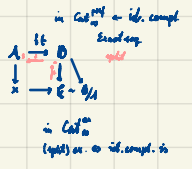 in Cat^perf_∞ ← id. compl
Exact seq
A → B split
* → E ~ B/A
in Cat^ex_∞
(split) ex. ⇔ id. compl. is